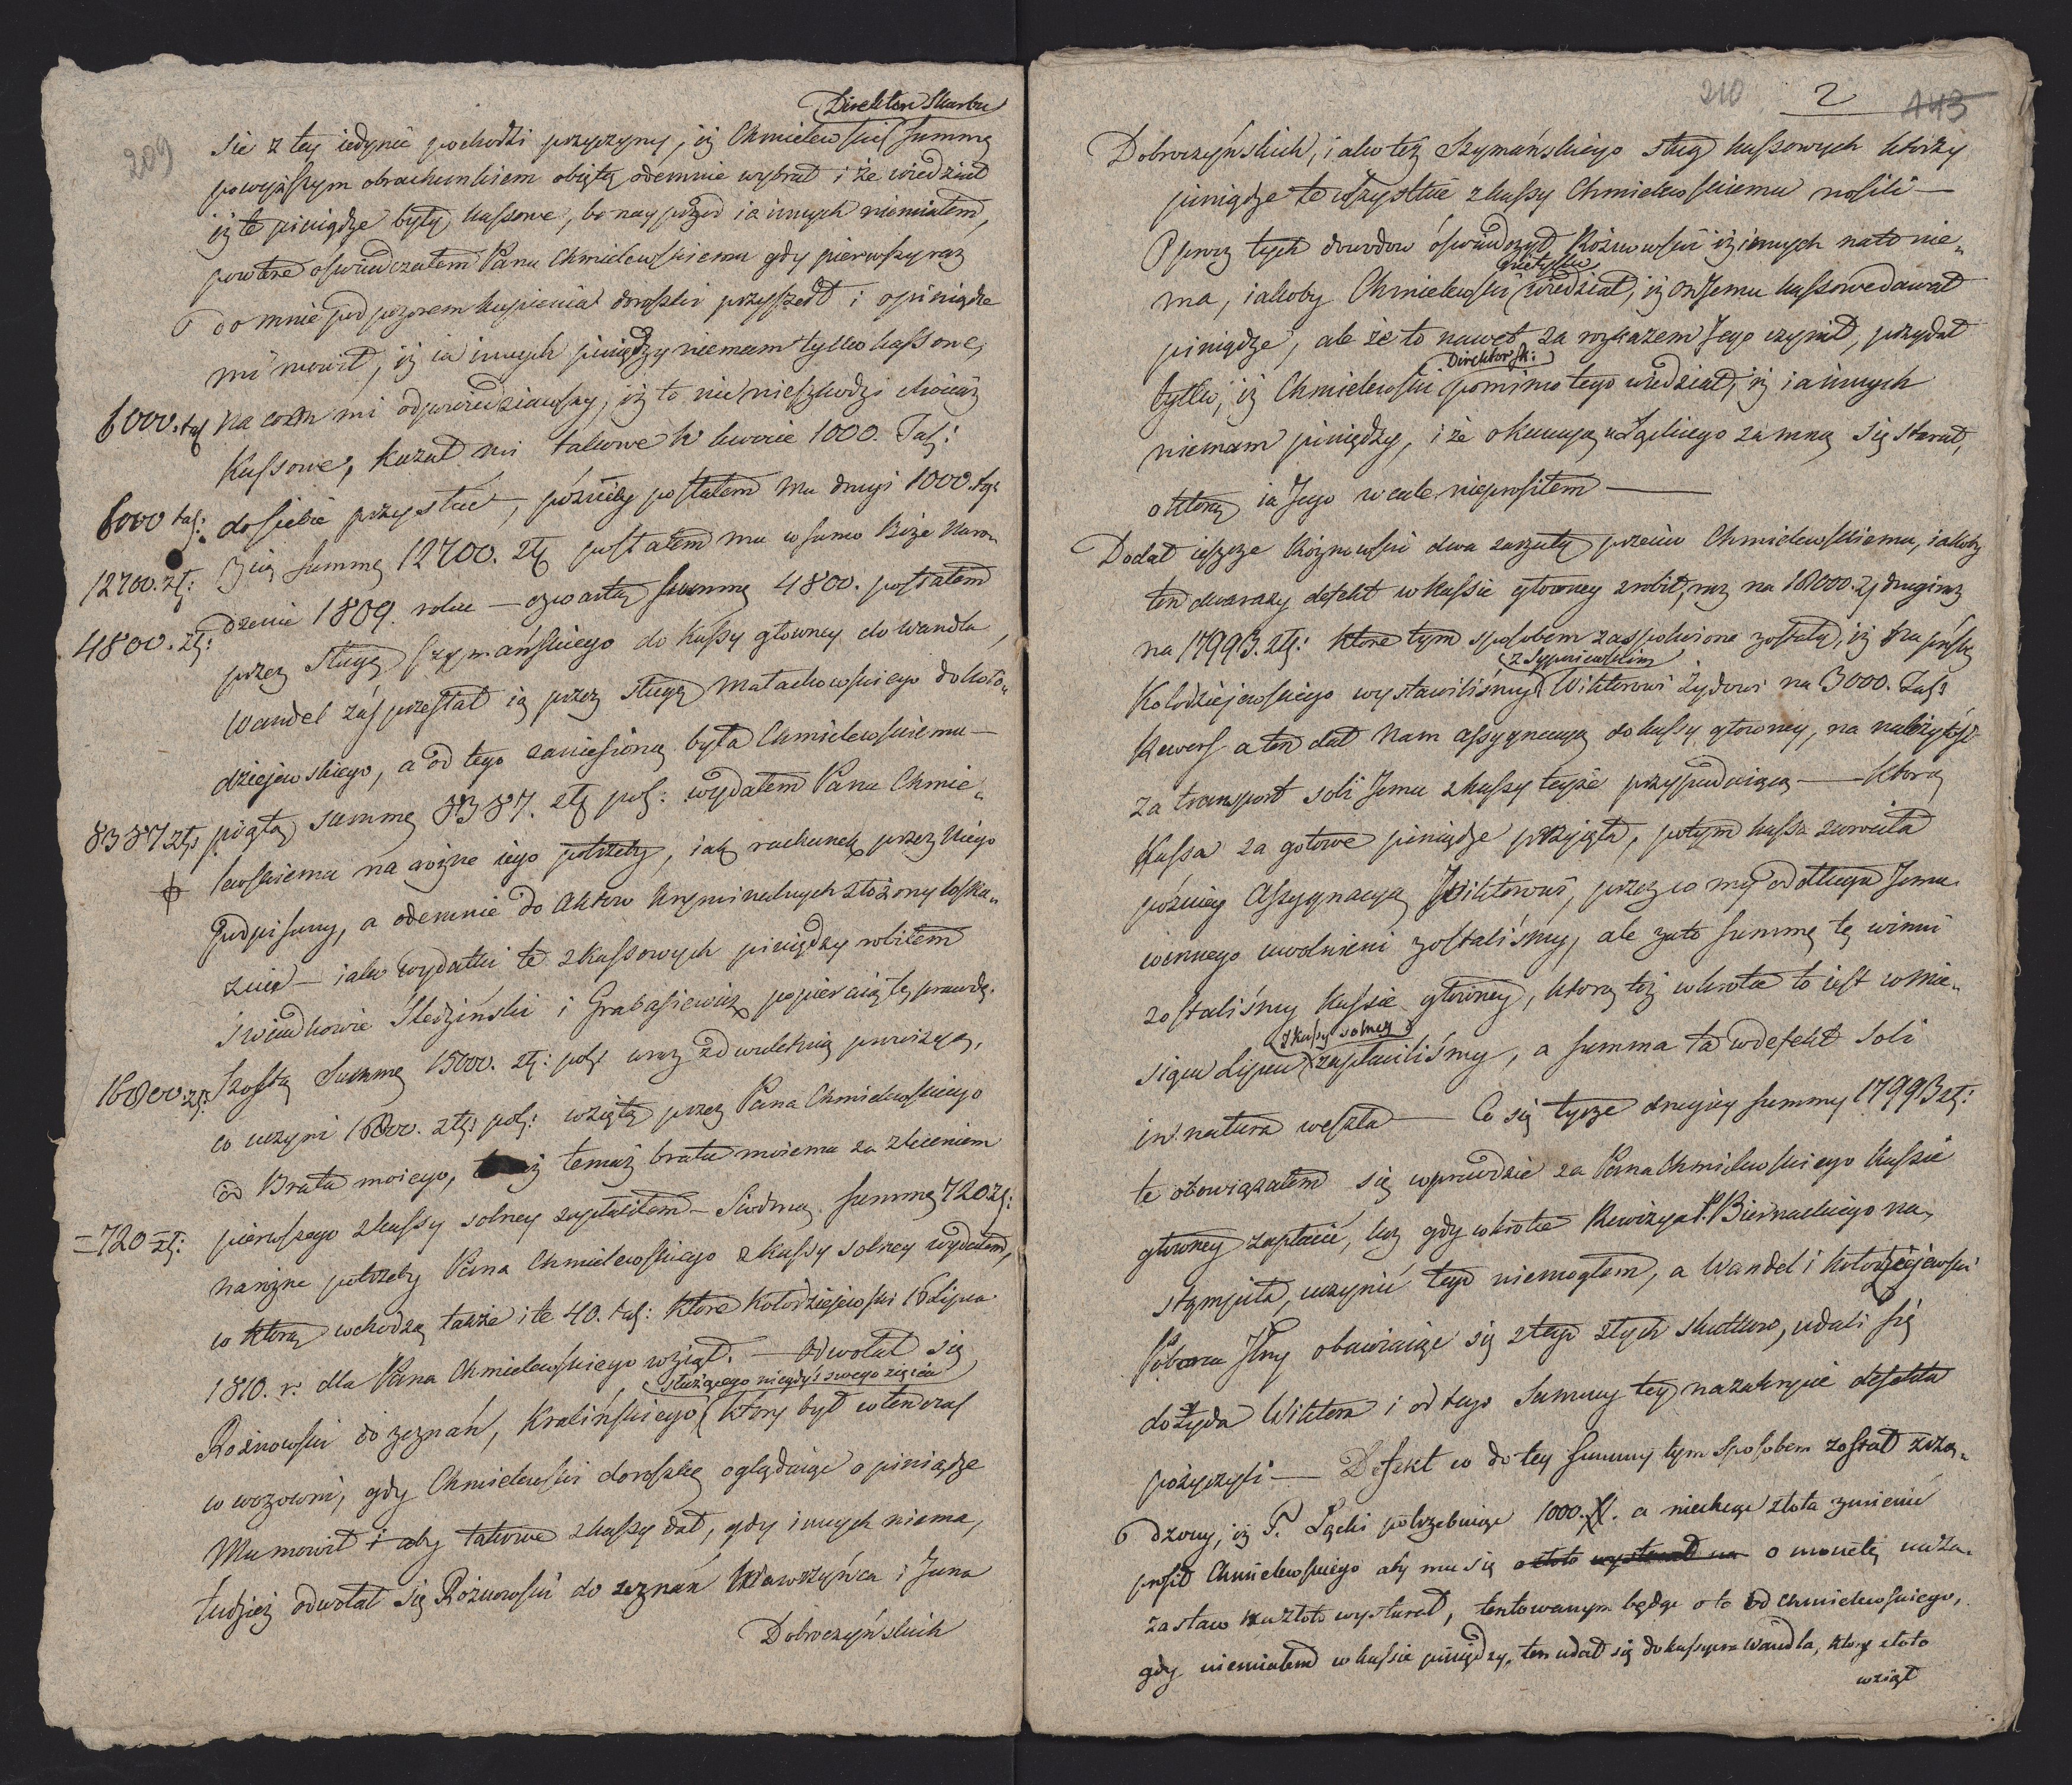 209
Direktor Skarbu
sie z tey iedynie pochodzi przyczyny, iż Chmielewski summę
powyższym obrachunkiem obiętą odemnie wybrał i że wiedział
iż te pieniądze były kassowe, bo nayprzod ia innych niemiałem,
powtore oswiadczałem Panu Chmielewskiemu gdy pierwszy raz
do mnie pod pozorem kupienia doroszki przyszedł i o piniądze
mi mowił, iż ia innych pieniędzy niemam tylko kassowe,
6000. tal na co on mi odpowiedziawszy, iż to nic nieszkodzi chociaż
Kassowe, kazał mi takowe w kwocie 1000. Tal:
6000 tal: do siebie przysłać, pózniéy posłałem mu drugi 1000. tal:
12700. zł: 3cią summę 12700. złł posłałem mu w samo Boże Naro„
4800. zł: dzenie 1809. roku — czwartą summę 4800. posłałem
przez sługę Szymańskiego do Kassy głowney do Wandla,
Wandel záś przesłał ią przez sługę Małachowskiego do Koło„
dziejewskiego, a od tego zaniesioną była Chmielewskiemu —
8387 zł: piątą summę 8387. złł pol: wydałem Panu Chmie„
lewskiemu na rożne iego potrzeby, iak rachunek przez Niego
podpisany, a odemnie do Aktow Kryminalnych złożony wska„
zuie — iako wydatki te z kassowych pieniędzy robiłem
świadkowie Śledziński i Grabasiewicz popieraią tę prawdę.
16800 zł: Szostą Summę 15000. zł: pol: wraz z dwuletnią prowizyą,
co uczyni 16800. złł: pol: wziętą przez Pana Chmielewskiego
od Brata moiego, temuż bratu moiemu za zleceniem
pierwszego z kassy solney zapłaciłem — Siodmą summę 720 zł:
= 720 zł: na rożne potrzeby Pana Chmielewskiego z kassy solney wydałem,
w ktorą wchodzą także i te 40. tal: ktore Kołodziejewski 16 Lipca
1810. r. dla Pana Chmielewskiego wziął. — Odwołał się
służącego niegdyś swego zięcia
Rożnowski do zeznań, Kralińskiego ktory był wtenczas
w wozowni, gdy Chmielewski doroszkę oglądaiąc o piniądze
Mu mowił i aby takowe z kassy dał, gdy innych niema,
tudzież odwołał się Rożnowski do zeznań Wawrzyńca i Jana
Dobroczyńskich
210 2 143
Dobroczyńskich, iako też Szymańskiego sług kassowych ktorzy
piniądze te wszystkie z kassy Chmielewskiemu nosili —
Oprocz tych dowodow óświadczył Rożnowski iż innych na to nie„
nietylko
ma, iakoby Chmielewski wiedział, iż on Jemu kassowe dawał
piniądze, ale że to nawet za rozkazem Jego czynił, przydał
Direktor sk:
tylko, iż Chmielewski pomimo tego wiedział, iż ia innych
niemam piniędzy, i że o kaucyą u Łąckiego za mną się starał,
o ktorą ia Jego wcale nieprosiłem —
Dodał ieszcze Rożnowski dwa zarzuty przeciw Chmielewskiemu, iakoby
ten dwa razy defekt w kassie głowney zrobił, raz na 18000. zł drugi raz
na 17993. złł: ktore tym sposobem zaspokoione zostały, iż
z Sypniewskim
Kołodziejewskiego wystawiliśmy Wiktorowi Żydowi na 3000. Tal:
Rewers a ten dał Nam assygnacyą do kassy głowney, na należytość
za transport soli Jemu z kassy teyże przypadaiącą — Ktorą
Kassa za gotowe pieniądze przyięła, potym kassa zawrociła
późniey Assygnacyą Wiktorowi, przez co my od długu Jemu
winnego uwolnieni zostaliśmy, ale za to summę tę winni
zostaliśmy kassie głowney, ktorą też wkrotce to iest w Mie„
z kassy solney
siącu Lipcu zapłaciliśmy, a summa ta w defekt Soli
in natura weszła — Co się tycze drugiey summy 17993 zł:
te obowiązałem się wprawdzie za Pana Chmielewskiego kassie
głowney zapłacić, lecz gdy wkrotce Rewizya P. Biernackiego na„
stąmpiła, uczynić tego niemogłem, a Wandel i Kołodziejewski
obawiaiąc się z tego złych skutkow, udali się
do Żyda Wiktora i od tego Summy tey na zakrycie defektu
pożyczyli — Defekt co do tey summy tym sposobem został zrzą„
dzony, iż P. Łącki potrzebuiąc 1000. # a niechcąc złota zmienić
prosił Chmielewskiego aby mu się o złoto wystarał na o monetę na Za„
zastaw na złoto wystarał, tentowanym będąc o to od Chmielewskiego,
gdy niemiałem w kassie piniędzy, ten udał się do kassyera Wandla, ktory złoto
wziął